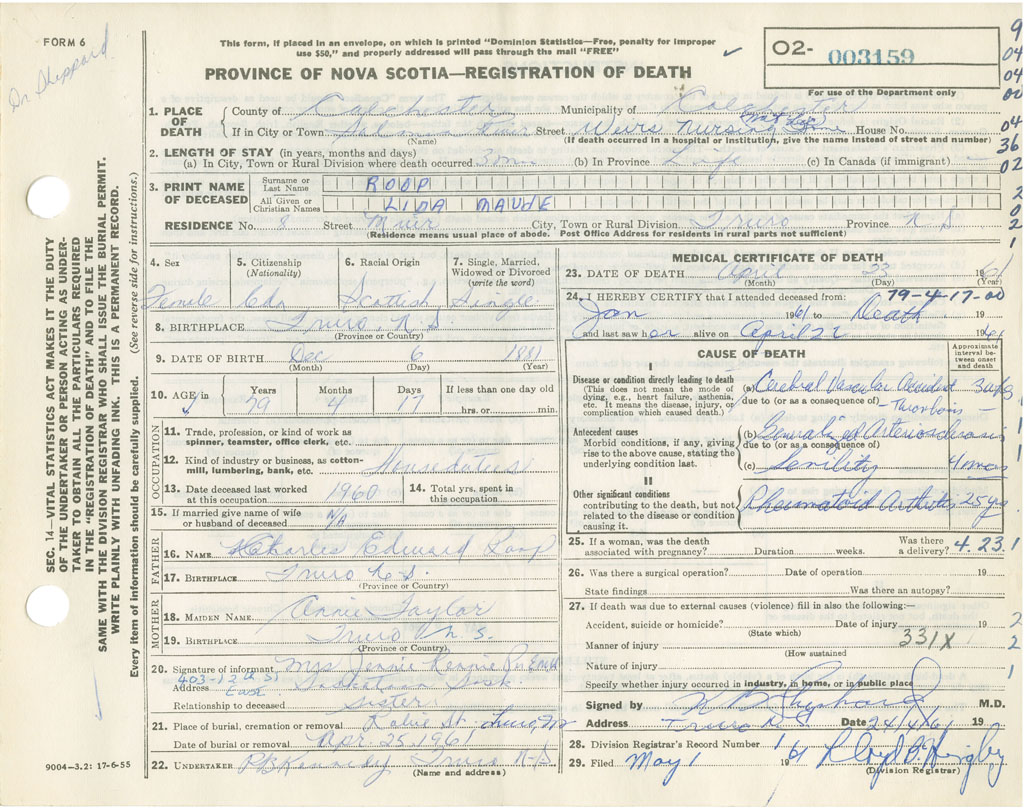 FORM 6
Dr Sheppard
This form, if placed in an envelope, on which is printed "Dominion Statistics—Free, penalty for improper
use $50," and properly addressed will pass through the mail "FREE"
PROVINCE OF NOVA SCOTIA—REGISTRATION OF DEATH
O2- 003159
For use of the Department only
9
04
04
00
04
36
02
2
0
2
1
1. PLACE OF DEATH
County of Colchester Municipality of Colchester
If in City or Town Street Weirs Nursing Home House No.
(Name) (If death occurred in a hospital or institution, give the name instead of street and number)
2. LENGTH OF STAY (in years, months and days)
(a) In City, Town or Rural Division where death occurred 3 mo (b) In Province Life (c) In Canada (if immigrant) —
3. PRINT NAME OF DECEASED
Surname or Last Name ROOP
All Given or Christian Names LIDA MAUDE
RESIDENCE No. 8 Street Muir City, Town or Rural Division Truro Province N S
(Residence means usual place of abode. Post Office Address for residents in rural parts not sufficient)
4. Sex 5. Citizenship (Nationality) 6. Racial Origin 7. Single, Married, Widowed or Divorced (write the word)
Female Cdn Scottish Single
8. BIRTHPLACE Truro, N.S.
(Province or Country)
9. DATE OF BIRTH Dec 6 1881
(Month) (Day) (Year)
10. AGE in Years 79 Months 4 Days 17 If less than one day old
hrs. or min.
OCCUPATION
11. Trade, profession, or kind of work as
spinner, teamster, office clerk, etc.
12. Kind of industry or business, as cotton-
mill, lumbering, bank, etc. House duties
13. Date deceased last worked
at this occupation 1960
14. Total yrs. spent in
this occupation
15. If married give name of wife
or husband of deceased N/A
FATHER
16. NAME Charles Edward Roop
17. BIRTHPLACE Truro N.S.
(Province or Country)
MOTHER
18. MAIDEN NAME Annie Taylor
19. BIRTHPLACE Truro N.S.
(Province or Country)
20. Signature of informant Mrs Jennie Rennie
403-12th St
Address East Saskatoon Sask
Relationship to deceased Sister
21. Place of burial, cremation or removal Robie St. Truro, NS
Date of burial or removal Apr 25, 1961
22. UNDERTAKER P.B. Kennedy Truro N.S.
(Name and address)
9004-3.2: 17-6-55
MEDICAL CERTIFICATE OF DEATH
23. DATE OF DEATH April 23 1961
(Month) (Day) (Year)
24. I HEREBY CERTIFY that I attended deceased from: 79-4-17-00
Jan 1961 to Death 19
and last saw her alive on April 22 1961
CAUSE OF DEATH
Approximate interval between onset and death
I
Disease or condition directly leading to death
(This does not mean the mode of
dying, e.g., heart failure, asthenia,
etc. It means the disease, injury, or
complication which caused death.)
(a) Cerebral Vascular Accident
due to (or as a consequence of)
Antecedent causes
Morbid conditions, if any, giving
rise to the above cause, stating the
underlying condition last.
(b) Generalized Arteriosclerosis
due to (or as a consequence of)
(c) Senility 4 mos
II
Other significant conditions
contributing to the death, but not
related to the disease or condition
causing it.
Rheumatoid Arthritis 25 yrs
25. If a woman, was the death
associated with pregnancy? Duration weeks. Was there
a delivery? 4.23.1
26. Was there a surgical operation? Date of operation 19
State findings Was there an autopsy?
27. If death was due to external causes (violence) fill in also the following:—
Accident, suicide or homicide? Date of injury 19 2
(State which)
Manner of injury 331X 2
(How sustained
Nature of injury 1
Specify whether injury occurred in industry, in home, or in public place
Signed by M.D.
Address Truro N.S Date 24/4/61 19 2
28. Division Registrar's Record Number 1
29. Filed May 1 1961
(Division Registrar)
SEC. 14—VITAL STATISTICS ACT MAKES IT THE DUTY
OF THE UNDERTAKER OR PERSON ACTING AS UNDER-
TAKER TO OBTAIN ALL THE PARTICULARS REQUIRED
IN THE "REGISTRATION OF DEATH" AND TO FILE THE
SAME WITH THE DIVISION REGISTRAR WHO SHALL ISSUE THE BURIAL PERMIT.
WRITE PLAINLY WITH UNFADING INK. THIS IS A PERMANENT RECORD.
Every item of information should be carefully supplied. (See reverse side for instructions.)